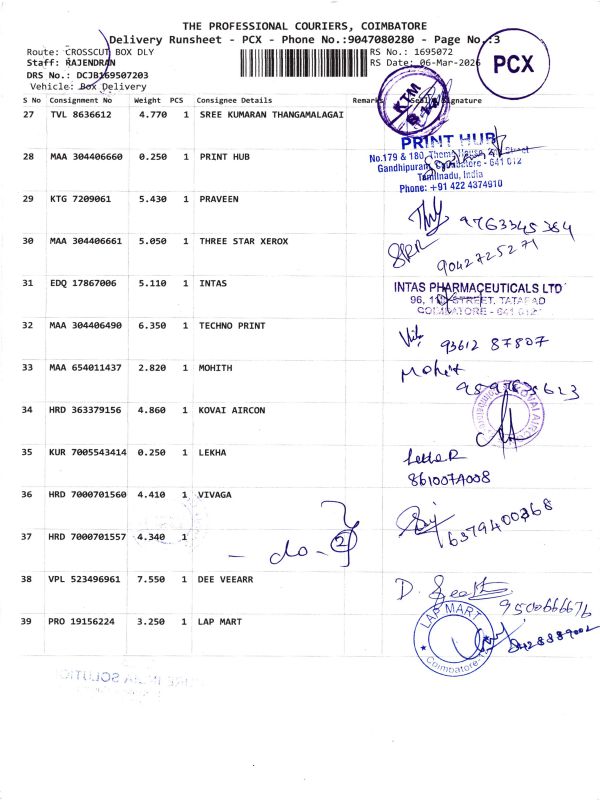 THE PROFESSIONAL COURIERS, COIMBATORE
Delivery Runsheet - PCX - Phone No.:9047080280 - Page No.:3
Route: CROSSCUT BOX DLY
RS No.: 1695072
Staff: RAJENDRAN
RS Date: 06-Mar-2026
DRS No.: DCJB169507203
Vehicle: Box Delivery
PCX
S No Consignment No Weight PCS Consignee Details Remarks Seal & Signature
KTM
27 TVL 8636612 4.770 1 SREE KUMARAN THANGAMALAGAI
28 MAA 304406660 0.250 1 PRINT HUB
PRINT HUB
No.179 & 180,
Gandhipuram, Coimbatore - 641 012
Tamilnadu, India
Phone: +91 422 4374910
29 KTG 7209061 5.430 1 PRAVEEN
9763345384
30 MAA 304406661 5.050 1 THREE STAR XEROX
9042725271
31 EDQ 17867006 5.110 1 INTAS
INTAS PHARMACEUTICALS LTD
COIMBATORE - 641 012
32 MAA 304406490 6.350 1 TECHNO PRINT
93612 87807
33 MAA 654011437 2.820 1 MOHITH
Mohit
34 HRD 363379156 4.860 1 KOVAI AIRCON
KOVAI AIRCON
35 KUR 7005543414 0.250 1 LEKHA
36 HRD 7000701560 4.410 1 VIVAGA
6379400368
37 HRD 7000701557 4.340 1
- do - 2
38 VPL 523496961 7.550 1 DEE VEEARR
9500666676
39 PRO 19156224 3.250 1 LAP MART
LAP MART
Coimbatore-12